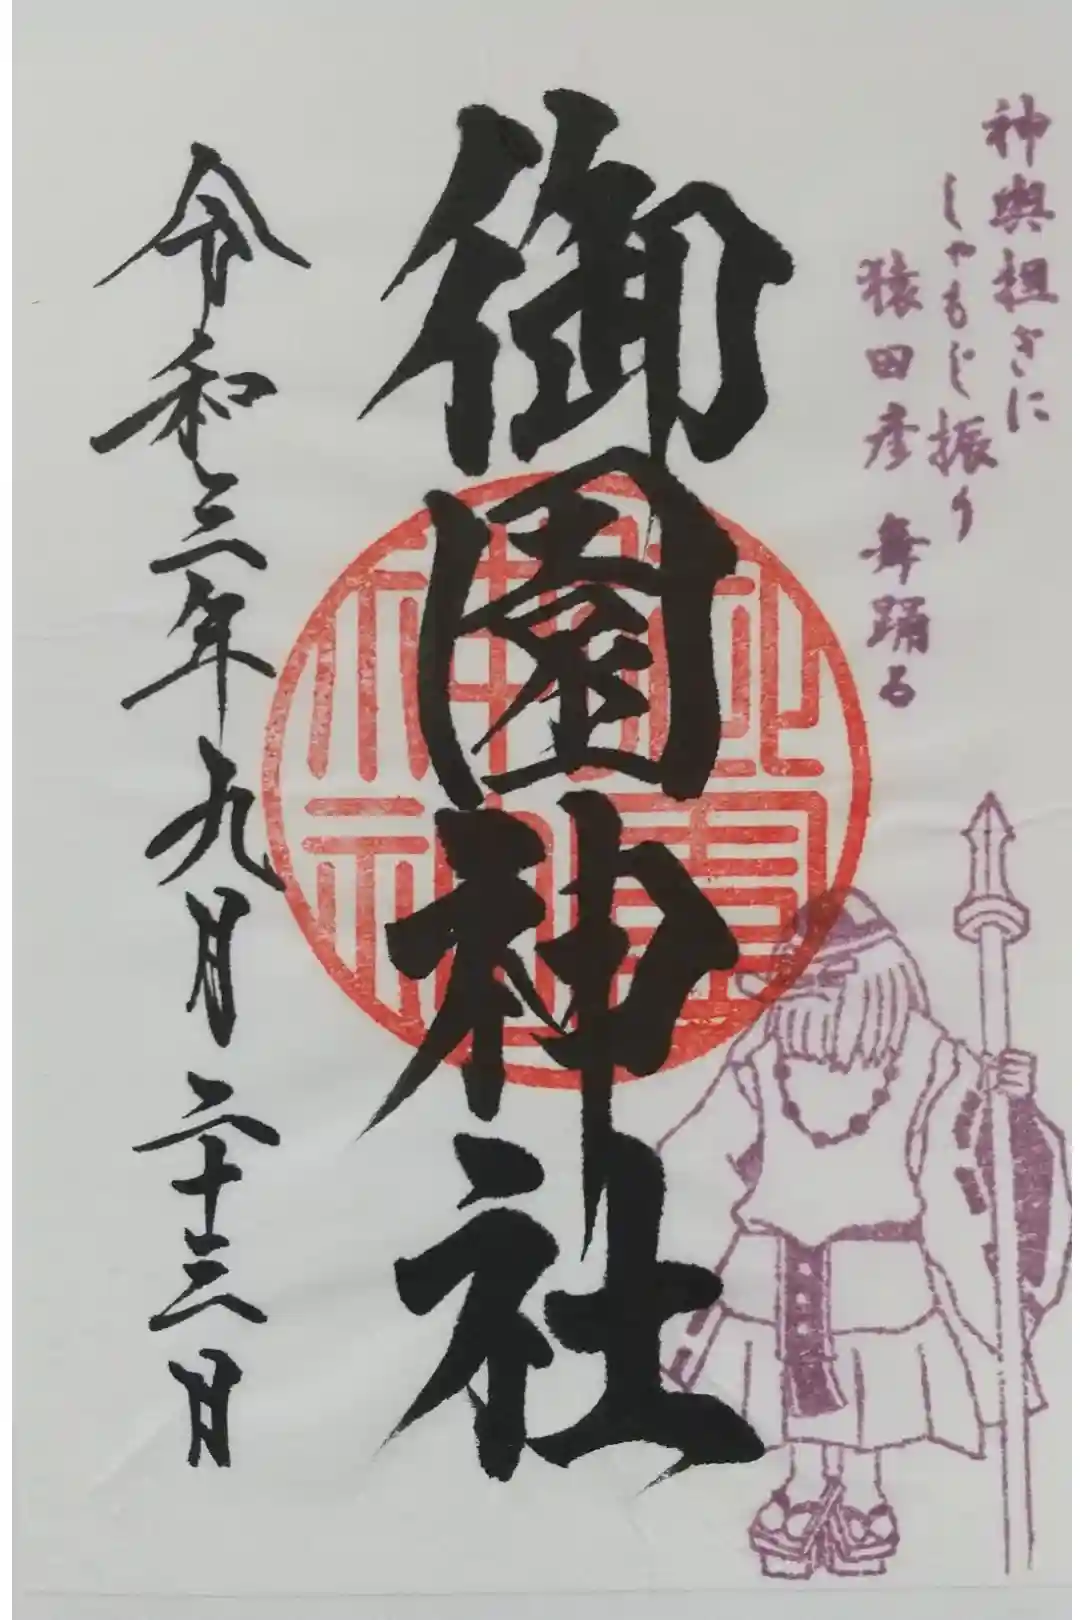 神輿担ぎに
しゃもじ振り
猿田彦舞踊る
御園神社
令和三年九月二十三日